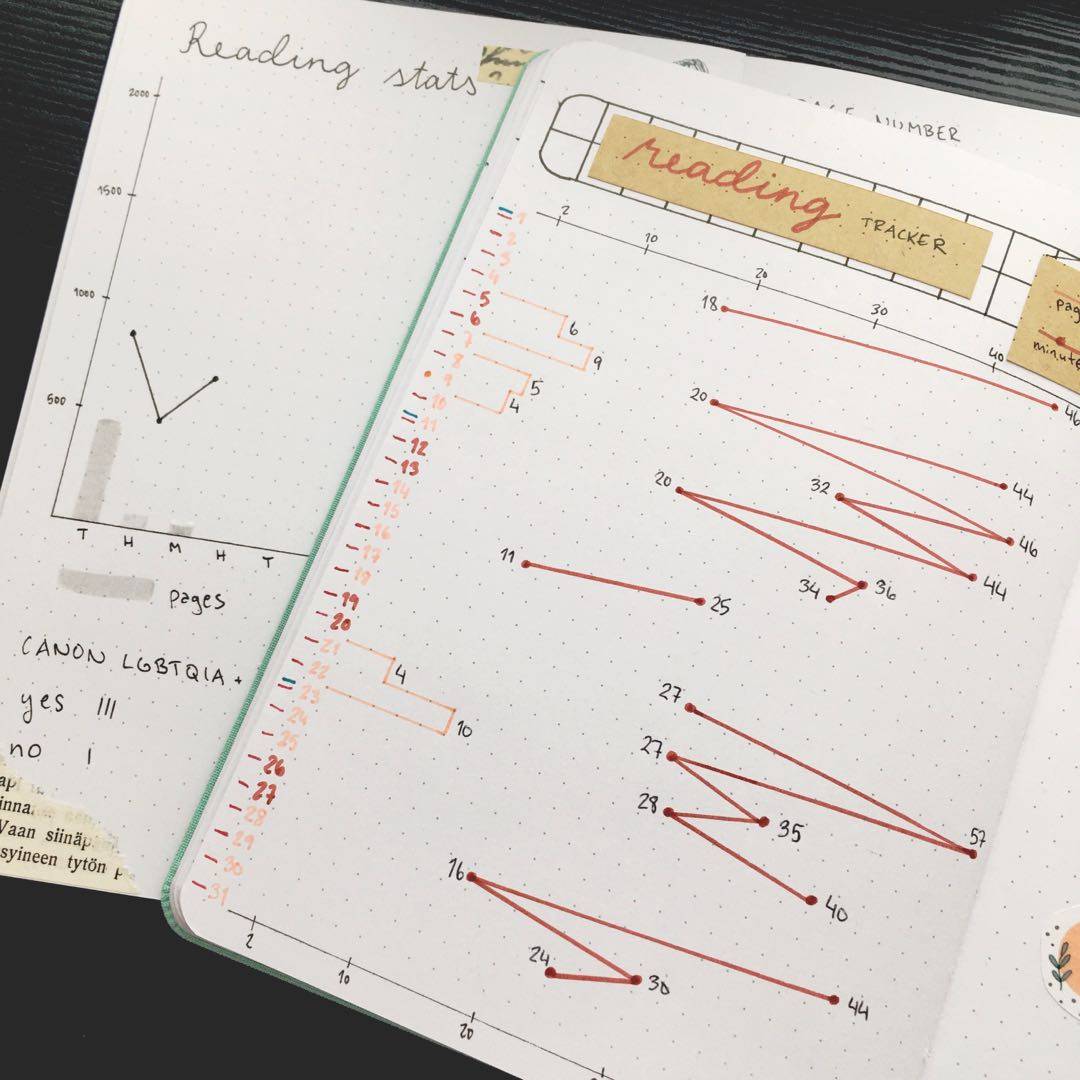 Reading stats
2000
1500
1000
500
T H M H T
pages
CANON LGBTQIA+
yes III
no I
Vaan siinäp
syineen tytön p
NUMBER
reading TRACKER
minute
2 10 20 30 40
1
2
3
4
5
6
7
8
9
10
11
12
13
14
15
16
17
18
19
20
21
22
23
24
25
26
27
28
29
30
31
6
9
5
4
4
10
18 46
20 44
46
20 32
44
34 36
11 25
27
27 57
28 35
40
16
24 30
44
2 10 20